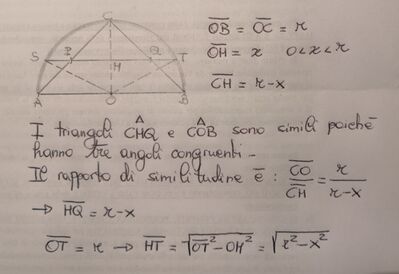 C
S P Q T
H
A O B
OB = OC = r
OH = x 0<x<r
CH = r-x
I triangoli CHQ e COB sono simili poiché
hanno tre angoli congruenti.
Il rapporto di similitudine è : CO/CH = r/r-x
→ HQ = r-x
OT = r → HT = √OT²-OH² = √r²-x²